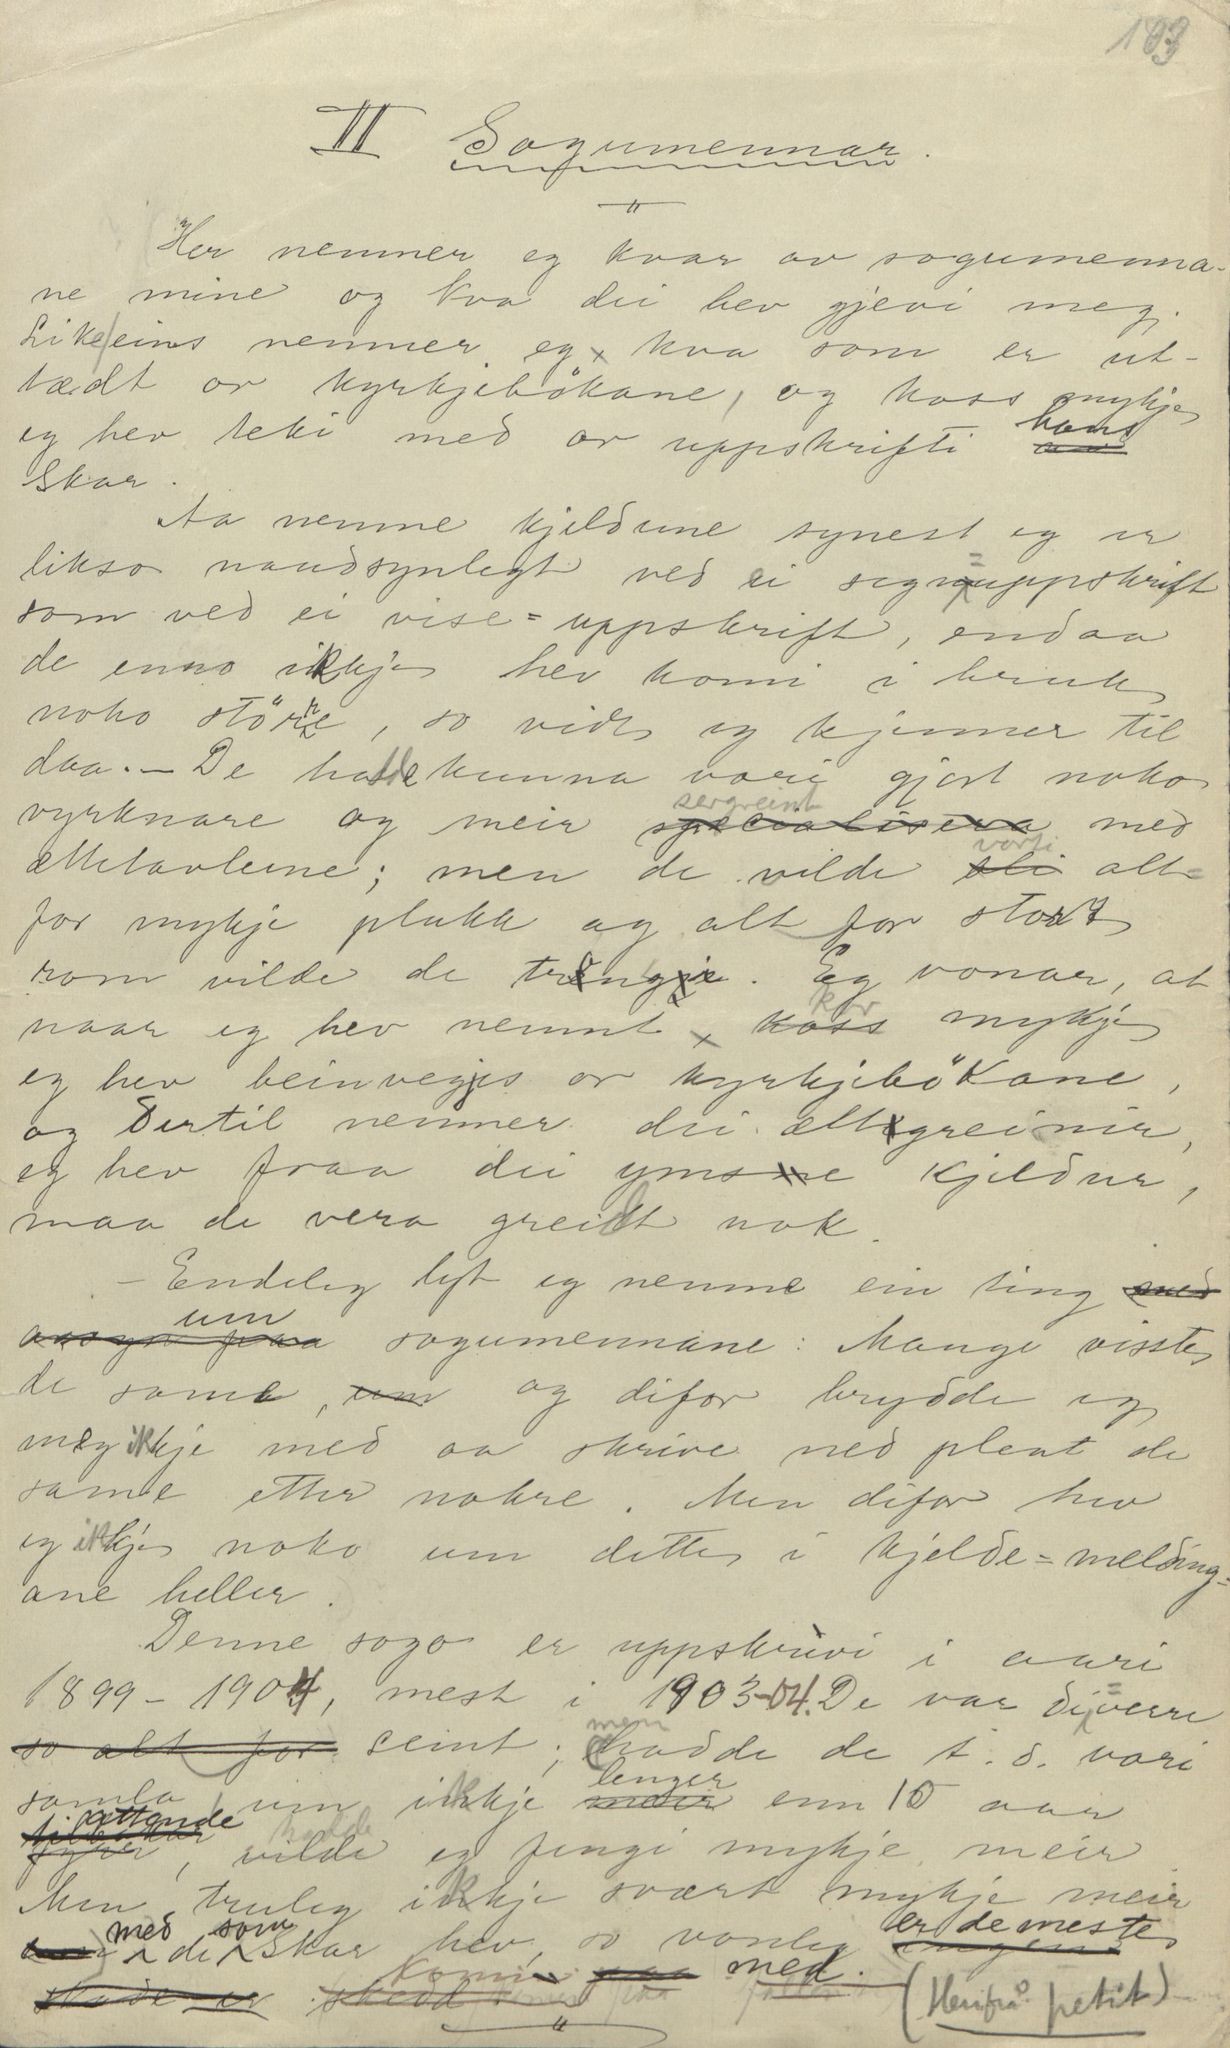 193
II Sogumennar.
Her nemner eg kvar av sogumenna-
ne mine og kva dei hev gjevi meg.
Likeeins nemner eg kva som er ut-
tædt or kyrkjebökane, og koss mykje
eg hev teki med or uppskrifti hans
Skar.
Aa nemne kjeldune synest eg er
likso naudsynlegt ved ei segn=uppskrift
som ved ei vise=uppskrift, endaa
de enno ikkje hev komi i bruk
noko större, so vidt eg kjenner til
daa. - De hadde kunna vori gjort noko
vyrknare og meir sergreint specialisera med
ættetavlune; men de vilde vorti bli alt-
for mykje plukk og alt for stort
rom vilde de trengje. Eg vonar, at
naar eg hev nemnt, kor koss mykje
eg hev beinveges or kyrkjebökane,
og dertil nemner dei ættegreinir,
eg hev fraa dei ymse kjeldur,
maa de vera greidt nok.
- Endeleg lyt eg nemne ein ting med
aasyn paa um sogumennane: Mange visste
de same, um og difor brydde eg
meg ikkje med aa skrive ned plent de
same etter nokre. Men difor hev
eg ikkje noko um dette i kjelde=melding=
ane heller.
Denne soga er uppskrivi i aari
1899-1904, mest i 1903-04. De var di=verre
so alt for seint; men hadde de t. d. vori
samla um ikkje lenger meir enn 10 aar
attende tilbakar fyrr, hadde vilde eg fengi mykje meir.
Men truleg ikkje svært mykje meir
med de som Skar hev, so vonleg er de meste ingen
skade er skedd komi paa med.
(Herifrå petit)